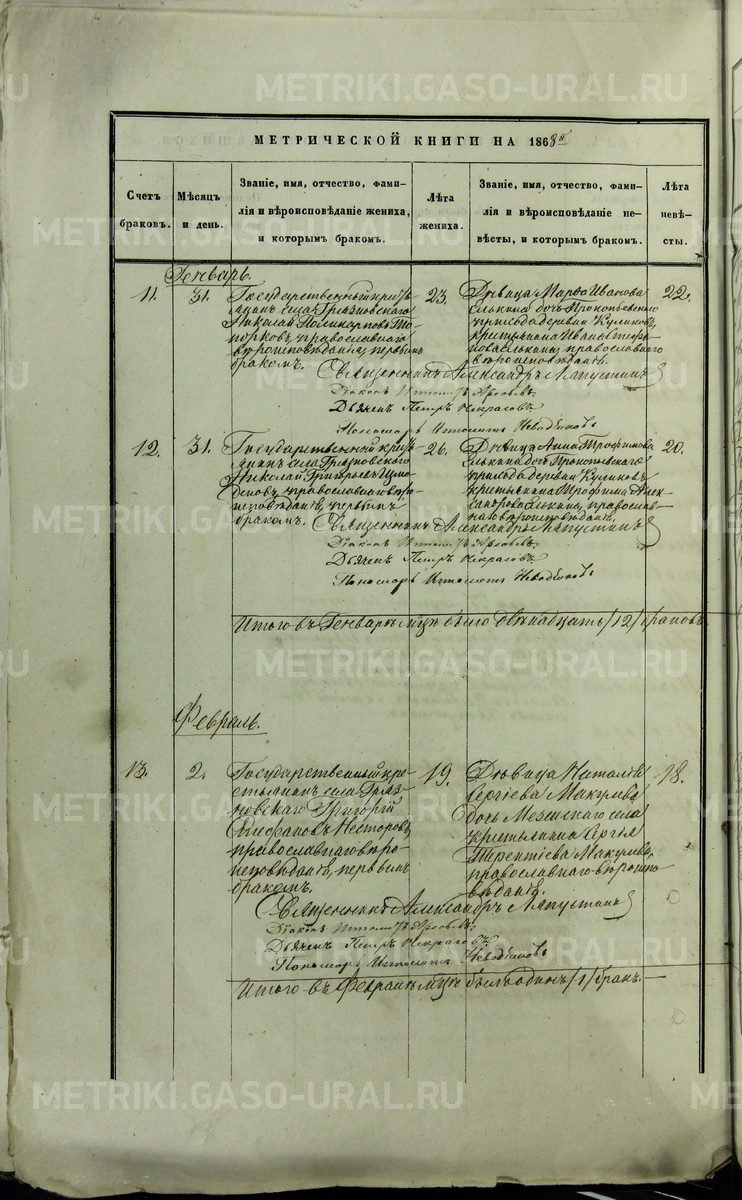 МЕТРИЧЕСКОЙ КНИГИ НА 1868й
Счетъ браковъ.
Мѣсяцъ и день.
Званіе, имя, отчество, фами-
лія и вѣроисповѣданіе жениха,
и которымъ бракомъ.
Лѣта жениха.
Званіе, имя, отчество, фами-
лія и вѣроисповѣданіе не-
вѣсты, и которымъ бракомъ.
Лѣта невѣ-
сты.
Генварь.
11.
31.
Государственный кресть-
янинъ села Грязновскаго
Николай Поликарповъ То-
порковъ, православнаго
вѣроисповѣданія, первымъ
бракомъ.
23.
Дѣвица Марѳа Иванова
дочь Прокопьевскаго
прихода деревни Куликовъ,
крестьянина Ивана
православнаго
вѣроисповѣданія.
22.
Священникъ Александръ Ляпустинъ
Діаконъ
Дьячекъ Петръ Некрасовъ
Пономарь Ипполитъ
12.
31.
Государственный кресть-
янинъ села Грязновскаго
Николай Григорьевъ
православнаго вѣро-
исповѣданія, первымъ
бракомъ.
26.
Дѣвица Анна Трофимова
дочь Прокопьевскаго
прихода деревни Куликовъ
крестьянина Трофима Алек-
сандрова православ-
наго вѣроисповѣданія,
20.
Священникъ Александръ Ляпустинъ
Діаконъ
Дьячекъ Петръ Некрасовъ
Пономарь Ипполитъ
Итого въ Генварѣ м-цѣ было двѣнадцать /12/ браковъ.
Февраль.
13.
2.
Государственный кре-
стьянинъ села Гряз-
новскаго Григорій
Епифановъ Несторовъ,
православнаго вѣро-
исповѣданія, первымъ
бракомъ.
19.
Дѣвица Наталія
Сергіева
дочь села
крестьянина Сергія
Терентіева
православнаго вѣроиспо-
вѣданія.
18.
Священникъ Александръ Ляпустинъ
Діаконъ
Дьячекъ Петръ Некрасовъ
Пономарь Ипполитъ
Итого въ Февралѣ м-цѣ былъ одинъ /1/ бракъ.
METRIKI.GASO-URAL.RU